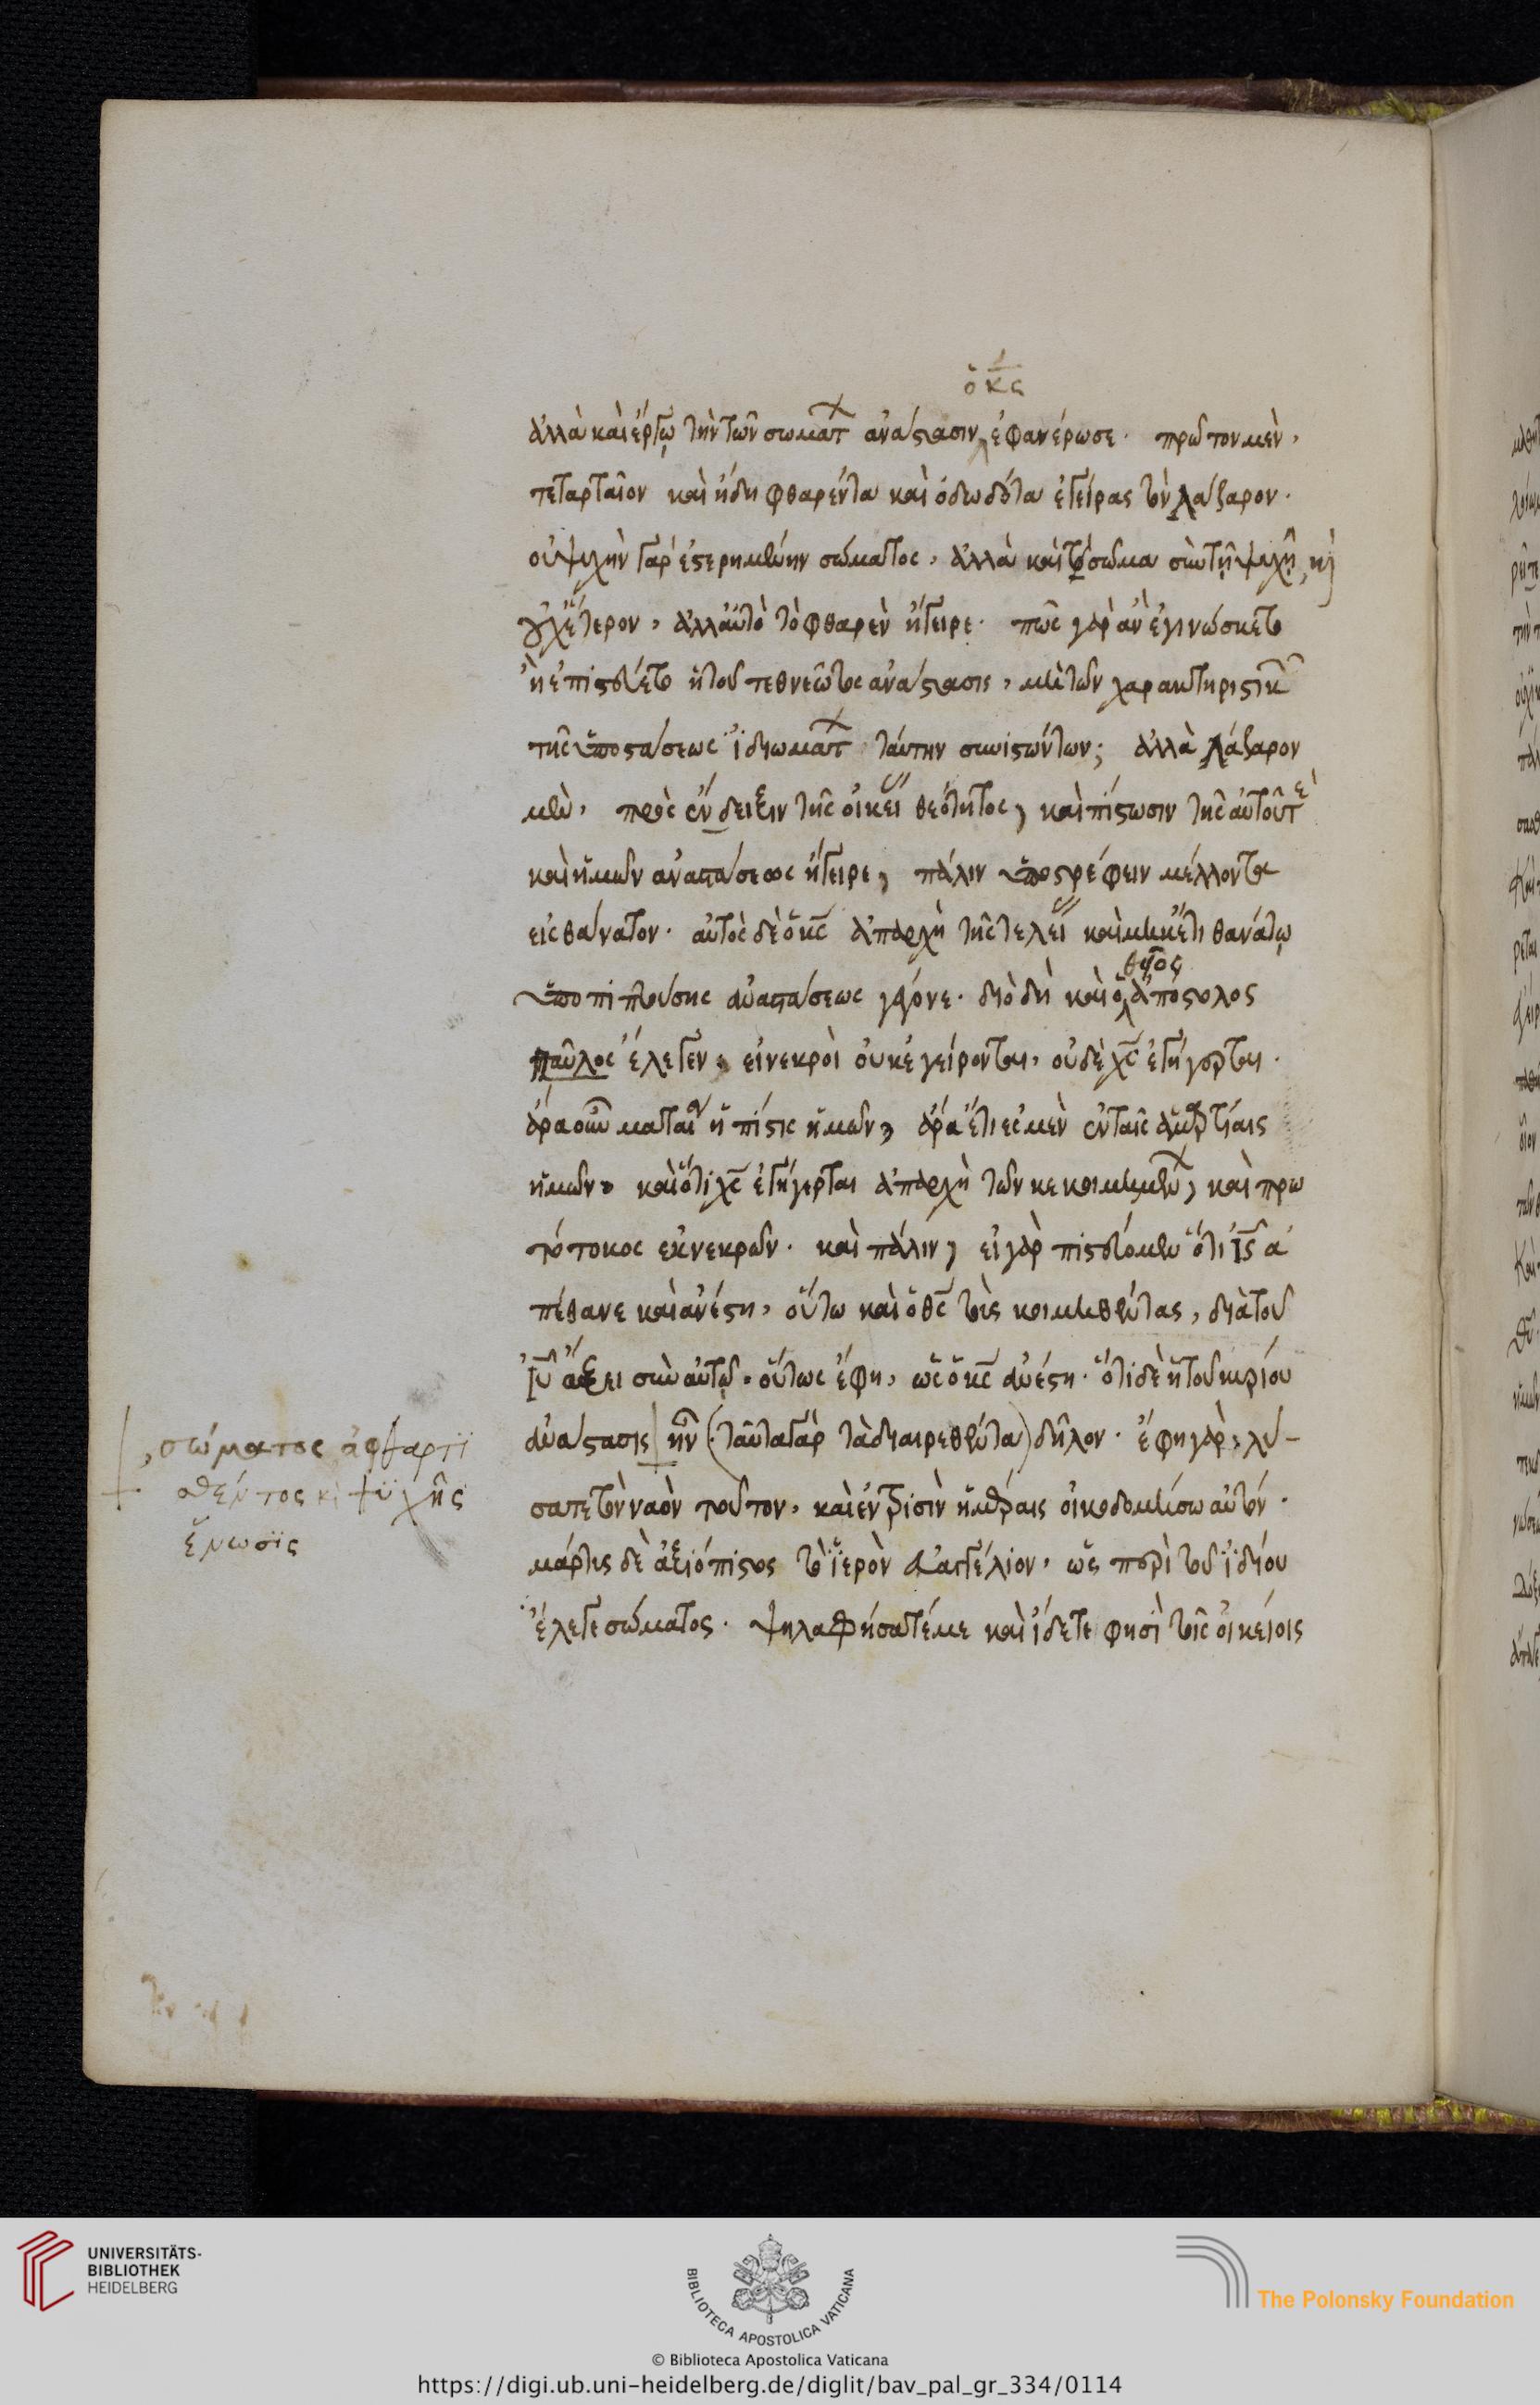 ὁ κς
ἀλλὰ καὶ ἔργω τὴν τῶν σωμάτ ἀνάστασιν ἐφανέρωσε· πρῶτον μὲν,
τεταρταῖον καὶ ἤδη φθαρέντα καὶ ὀδωδότα ἐγείρας τὸν λάζαρον·
οὐ ψυχὴν γὰρ ἐστερημένην σώματος, ἀλλὰ καὶ τὸ σῶμα σὺν τῇ ψυχῇ, κὶ
οὐχ ἕτερον, ἀλλ αὐτὸ τὸ φθαρὲν ἤγειρε· πῶς γὰρ ἂν ἐγινώσκετο
ἢ ἐπιστεύετο ἡ τοῦ τεθνεῶτος ἀνάστασις, μὴ τῶν χαρακτηριστικ
τῆς ὑποστάσεως ἰδιωμάτ ταύτην συνιστώντων; ἀλλὰ λάζαρον
μὲν, πρὸς ἔνδειξιν τῆς οἰκεί θεότητος, καὶ πίστωσιν τῆς αὐτοῦ τε
καὶ ἡμῶν ἀναστάσεως ἤγειρε, πάλιν ὑποστρέφειν μέλλοντα
εἰς θάνατον· αὐτὸς δὲ ὁ κς ἀπαρχὴ τῆς τελεί καὶ μηκέτι θανάτῳ
θεῖος
ὑποπιπτούσης ἀναστάσεως γέγονε· διὸ δὴ καὶ ὁ ἀπόστολος
παῦλος ἔλεγεν, εἰ νεκροὶ οὐκ ἐγείρονται, οὐδὲ χς ἐγήγερται·
ἄρα οὖν ματαί ἡ πίστις ἡμῶν, ἄρα ἔτι ἐσμὲν ἐν ταῖς ἁμαρτίαις
ἡμῶν, καὶ ὅτι χς ἐγήγερται ἀπαρχὴ τῶν κεκοιμημέν, καὶ πρω
τότοκος ἐκ νεκρῶν· καὶ πάλιν, εἰ γὰρ πιστεύομεν ὅτι ις ἀ
πέθανε καὶ ἀνέστη, οὕτω καὶ ὁ θς τοὺς κοιμηθέντας, διὰ τοῦ
ιυ ἄξει σὺν αὐτῷ· οὕτως ἔφη, ὡς ὁ κς ἀνέστη· ὅτι δὲ ἡ τοῦ κυρίου
ἀνάστασις ἦν (ταῦτα γὰρ τὰ διαιρεθέντα) δῆλον· ἔφη γὰρ, λύ-
σατε τὸν ναὸν τοῦτον, καὶ ἐν τρισὶν ἡμέραις οἰκοδομήσω αὐτόν·
μάρτυς δὲ ἀξιόπιστος τὸ ἱερὸν εὐαγγέλιον, ὡς περὶ τοῦ ἰδίου
ἔλεγε σώματος· ψηλαφήσατέ με καὶ ἴδετε φησὶ τοῖς οἰκείοις
, σώματος ἀφθαρτϊ
σθέντος κὶ ψϋχῆς
ἕνωσϊς
UNIVERSITÄTS-
BIBLIOTHEK
HEIDELBERG
BIBLIOTECA APOSTOLICA VATICANA
The Polonsky Foundation
© Biblioteca Apostolica Vaticana
https://digi.ub.uni-heidelberg.de/diglit/bav_pal_gr_334/0114